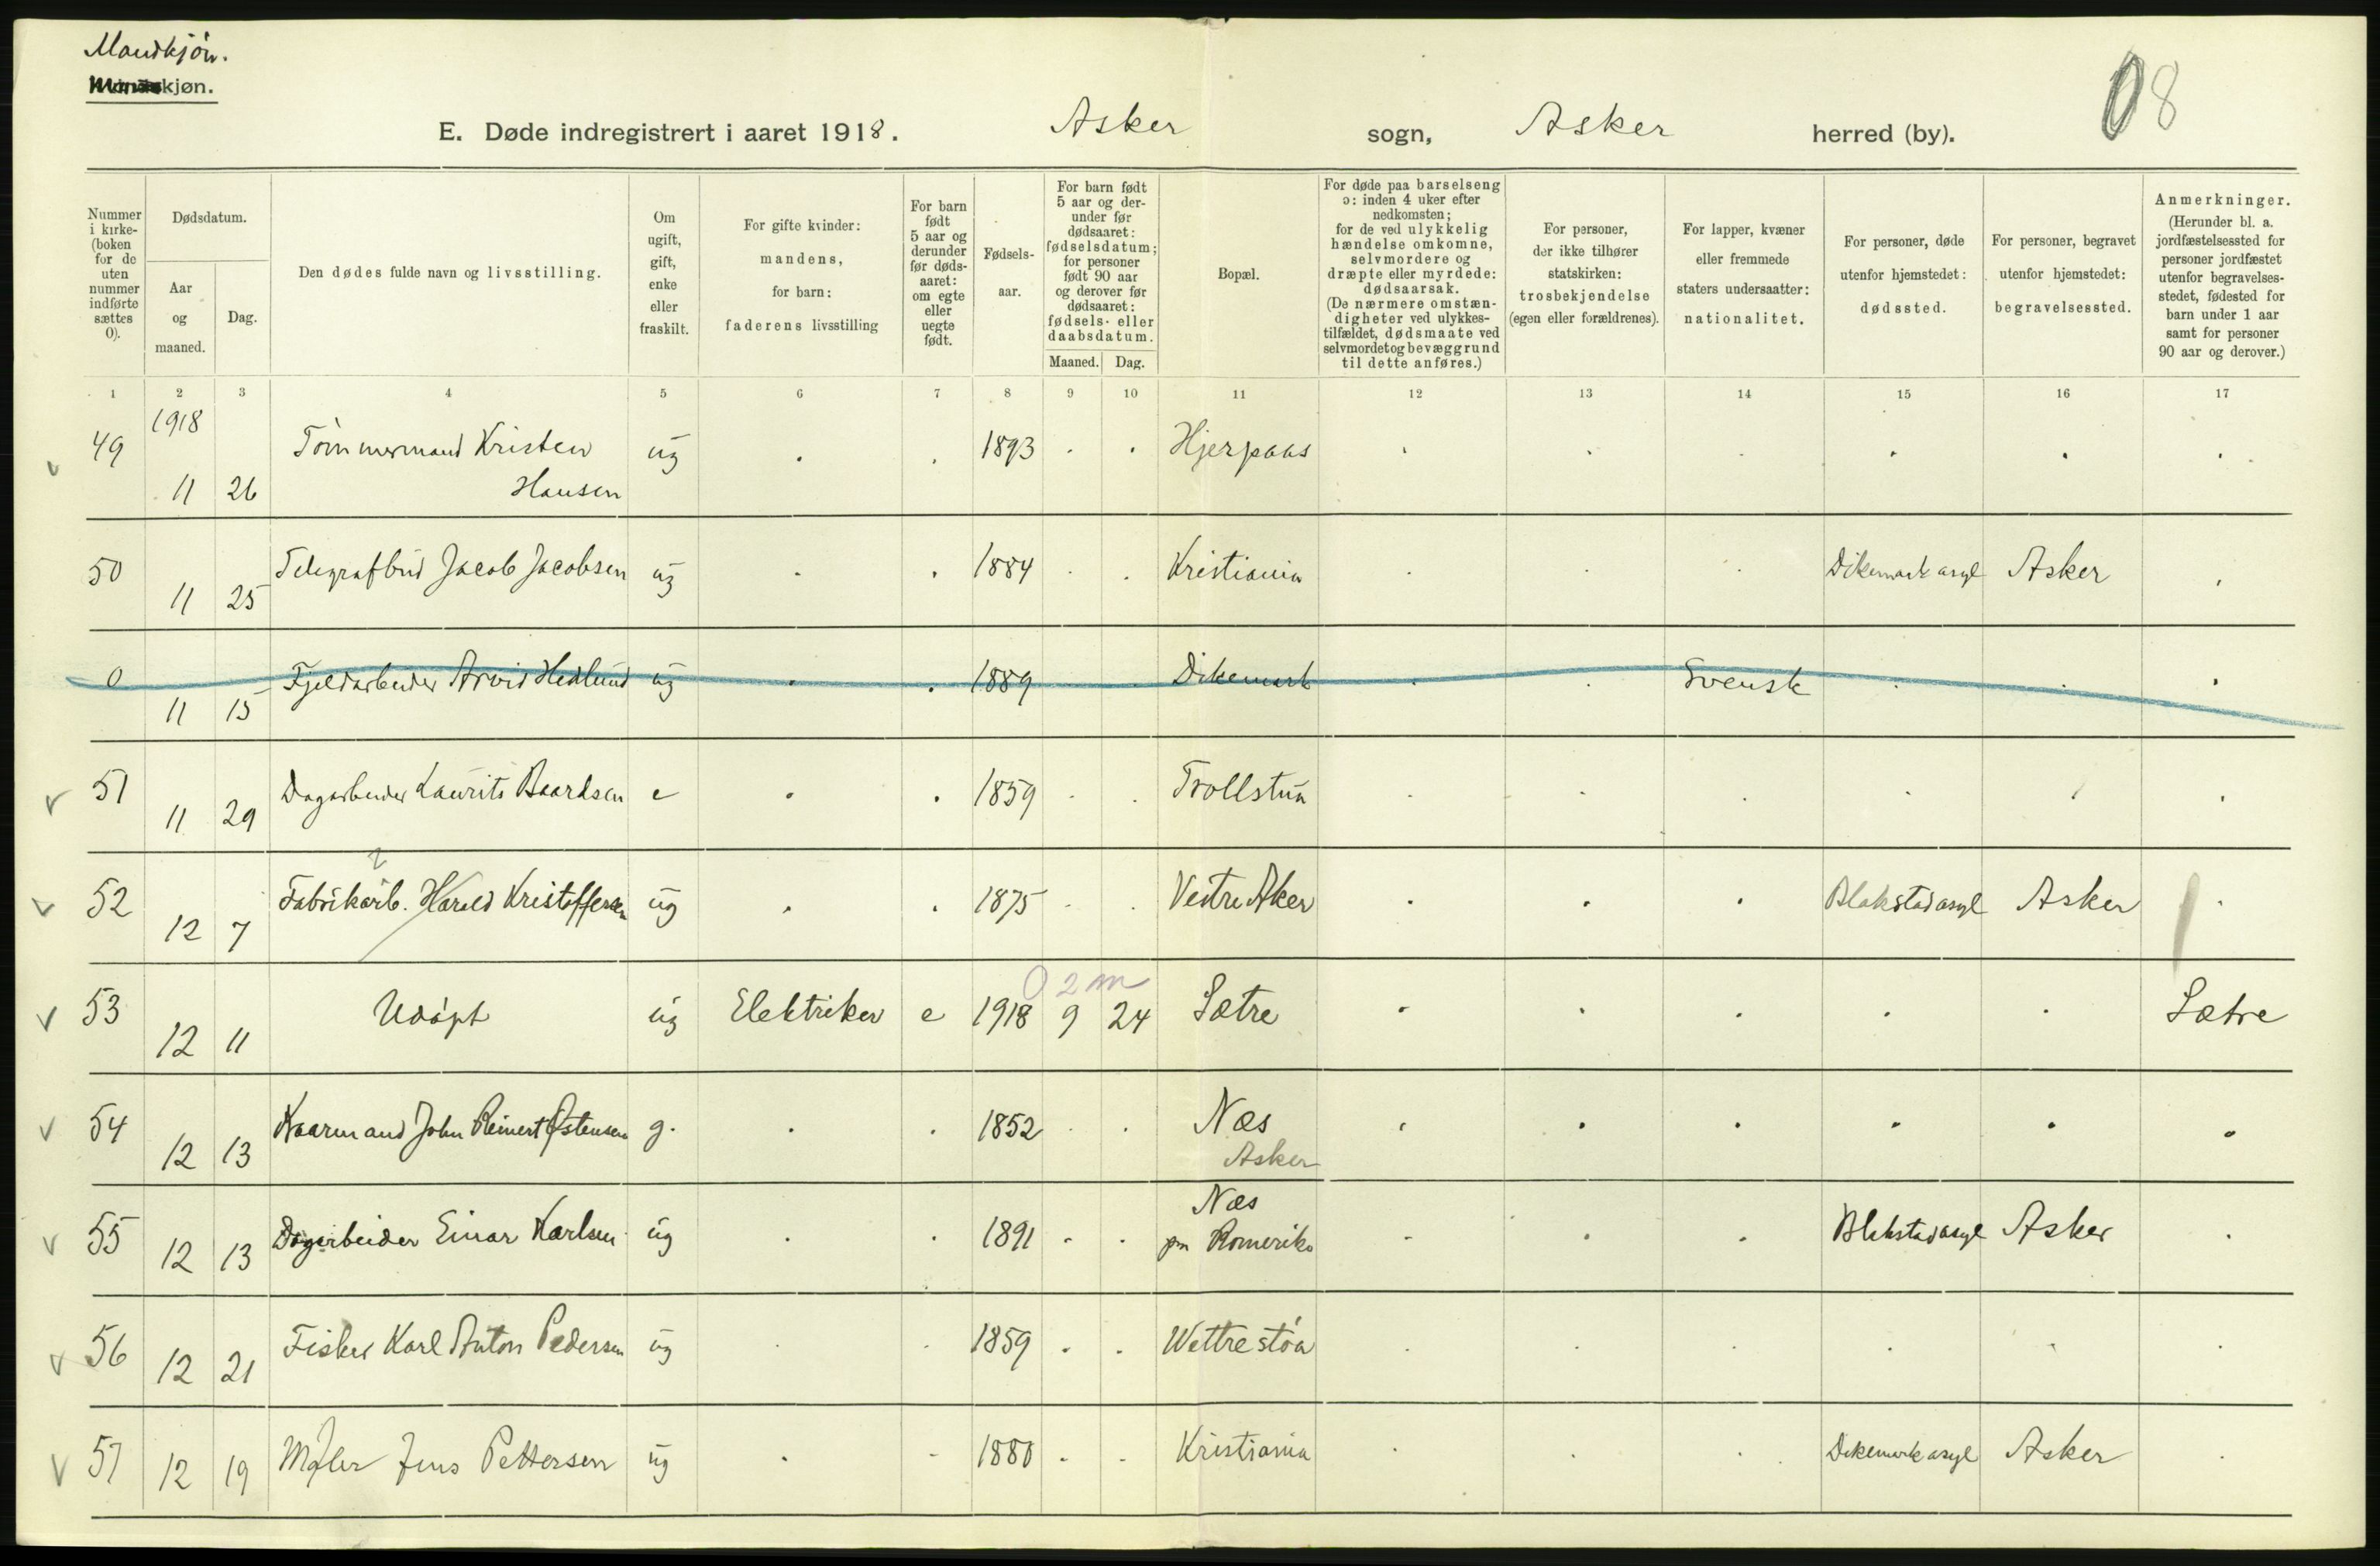 Mandkjøn.
kjøn.
08
E. Døde indregistrert i aaret 1918. Asker sogn, Asker herred (by).
Nummer i kirke-(boken for de uten nummer indførte sættes 0).
Dødsdatum.
Aar og maaned.
Dag.
Den dødes fulde navn og livsstilling.
Om ugift, gift, enke eller fraskilt.
For gifte kvinder: mandens, for barn: faderens livsstilling
For barn født 5 aar og derunder før døds-aaret: om egte eller uegte født.
Fødsels-aar.
For barn født 5 aar og der-under før dødsaaret: fødselsdatum; for personer født 90 aar og derover før dødsaaret: fødsels- eller daabsdatum.
Maaned. Dag.
Bopæl.
For døde paa barselseng ɔ: inden 4 uker efter nedkomsten; for de ved ulykkelig hændelse omkomne, selvmordere og dræpte eller myrdede: dødsaarsak. (De nærmere omstæn-digheter ved ulykkes-tilfældet, dødsmaate ved selvmordet og bevæggrund til dette anføres.)
For personer, der ikke tilhører statskirken: trosbekjendelse (egen eller forældrenes).
For lapper, kvæner eller fremmede staters undersaatter: nationalitet.
For personer, døde utenfor hjemstedet: dødssted.
For personer, begravet utenfor hjemstedet: begravelsessted.
Anmerkninger. (Herunder bl. a. jordfæstelsessted for personer jordfæstet utenfor begravelses-stedet, fødested for barn under 1 aar samt for personer 90 aar og derover.)
1 2 3 4 5 6 7 8 9 10 11 12 13 14 15 16 17
1918
v 49 11 26 Tømmermand Kristen Hansen ug . . 1893 . . Hjerpaas . . . . . .
50 11 25 Telegrafbud Jacob Jacobsen ug . . 1884 . . Kristiania . . . Dikemark asyl Asker .
0 11 15 Fjeldarbeider Arvid Hedlund ug . . 1889 Dikemark . . Svensk . . .
v 51 11 29 Dagarbeider Laurits Baardsen e . . 1859 . . Trollstun . . . . . .
v 52 12 7 Fabrikarb. Harald Kristoffersen ug . . 1875 . . Vestre Aker . . . Blakstad asyl Asker .
0 2 m
v 53 12 11 Udøpt ug Elektriker e 1918 9 24 Sætre . . . . . Sætre
v 54 12 13 Kaarmand John Reinert Østensen g. . . 1852 . . Næs Asker . . . . . .
v 55 12 13 Dagarbeider Einar Karlsen ug . . 1891 . . Næs pm Romerike . . . Blakstad asyl Asker .
v 56 12 21 Fisker Karl Anton Pedersen ug . . 1859 . . Wettrestøa . . . . . .
v 57 12 19 Maler Jens Pettersen ug . - 1880 . . Kristiania . . . Dikemark asyl Asker .